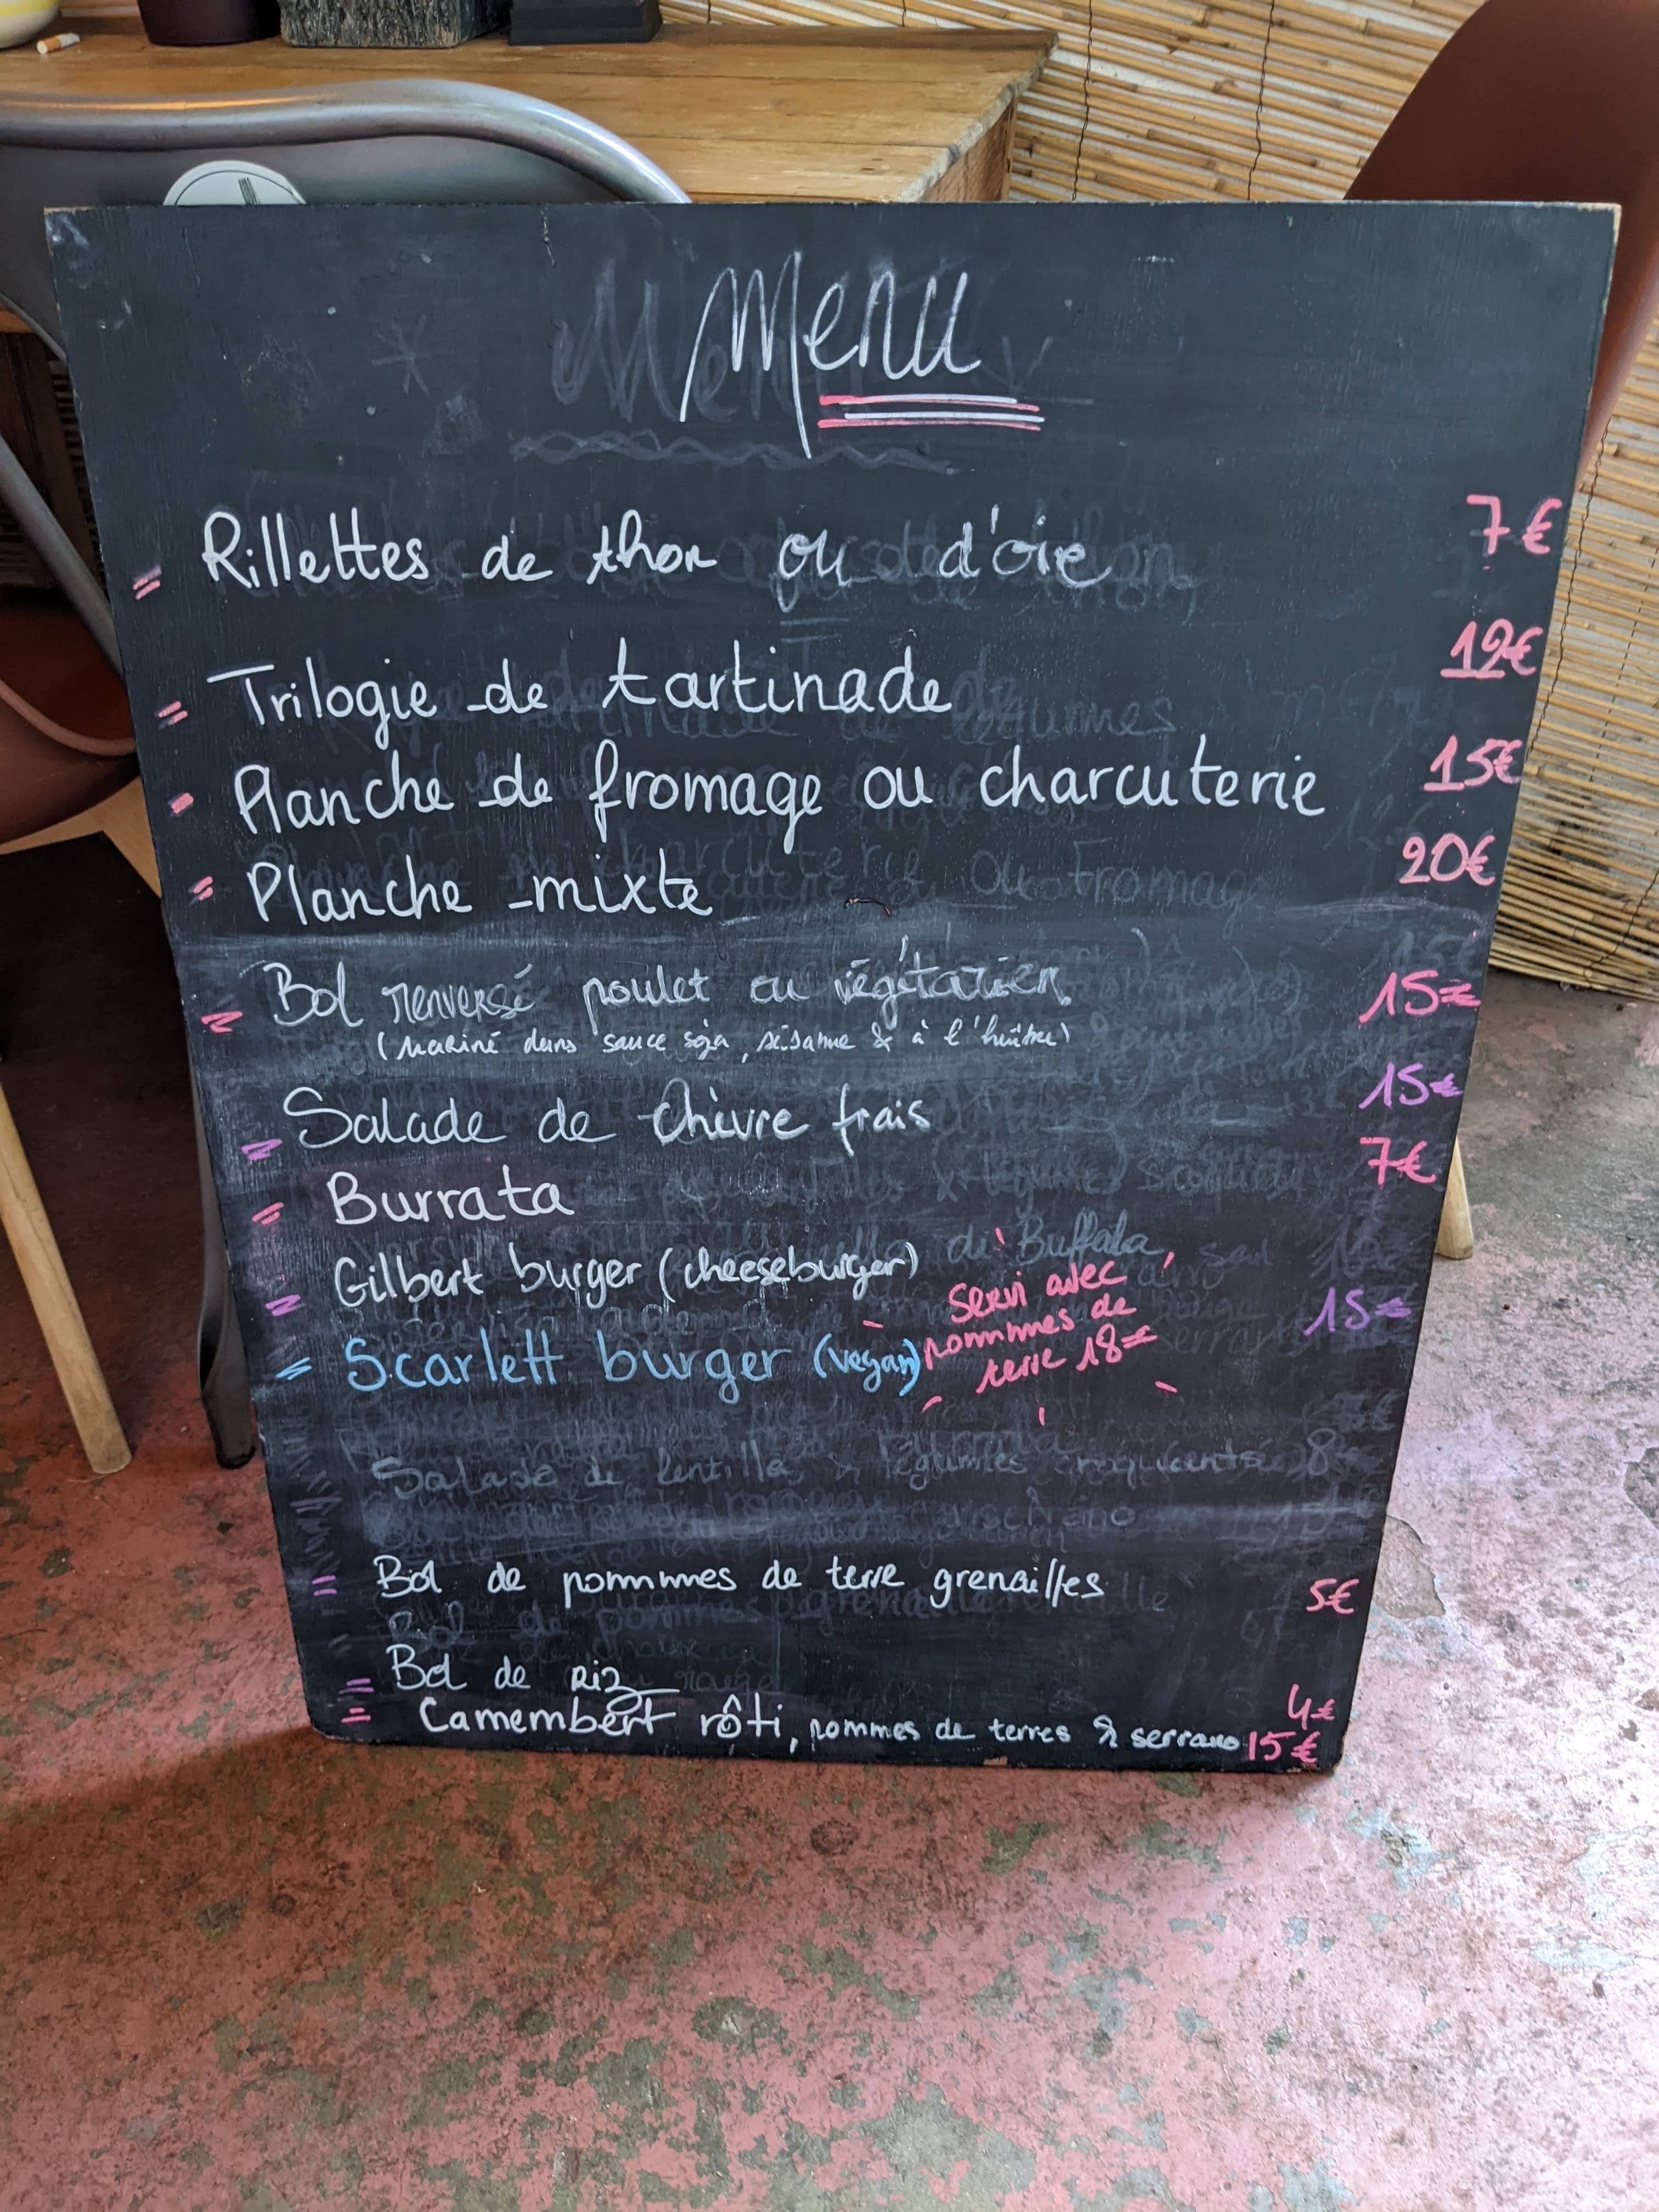 Menu
Rillettes de thon ou d'oie 7€
Trilogie de tartinade 12€
Planche de fromage ou charcuterie 15€
Planche mixte 20€
Bol renversé poulet ou végétarien 15€
(mariné dans sauce soja, sésame & à l'huître)
Salade de chèvre frais 15€
Burrata 7€
Gilbert burger (cheeseburger)
Scarlett burger (vegan) 15€
Servi avec
pommes de
terre 18€
Salade de lentilles & légumes croquants 8
Bol de pommes de terre grenailles 5€
Bol de riz 4€
Camembert rôti, pommes de terres & serrano 15€